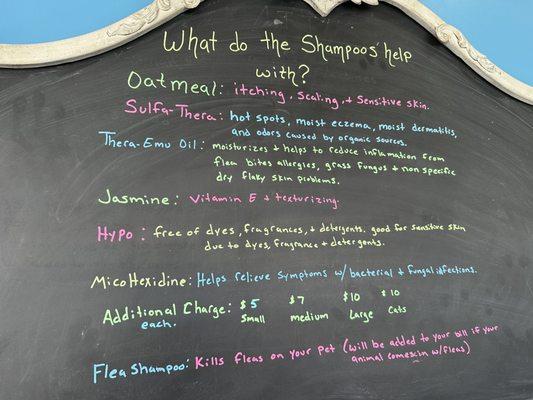 What do the Shampoos' help
with?
Oatmeal: itching, Scaling, + Sensitive Skin.
Sulfa-Thera: hot spots, moist eczema, moist dermatitis,
and odors caused by organic sources.
Thera-Emu Oil: moisturizes + helps to reduce inflamation from
flea bites allergies, grass fungus + non specific
dry flaky skin problems.
Jasmine: Vitamin E + texturizing.
Hypo: free of dyes, fragrances, + detergents. good for sensitive skin
due to dyes, fragrance + detergents.
MicoHexidine: Helps relieve symptoms w/ bacterial + fungal infections.
Additional Charge: $5 $7 $10 $10
each. Small medium Large Cats
Flea Shampoo: Kills fleas on your pet (will be added to your bill if your
animal comes in w/fleas)